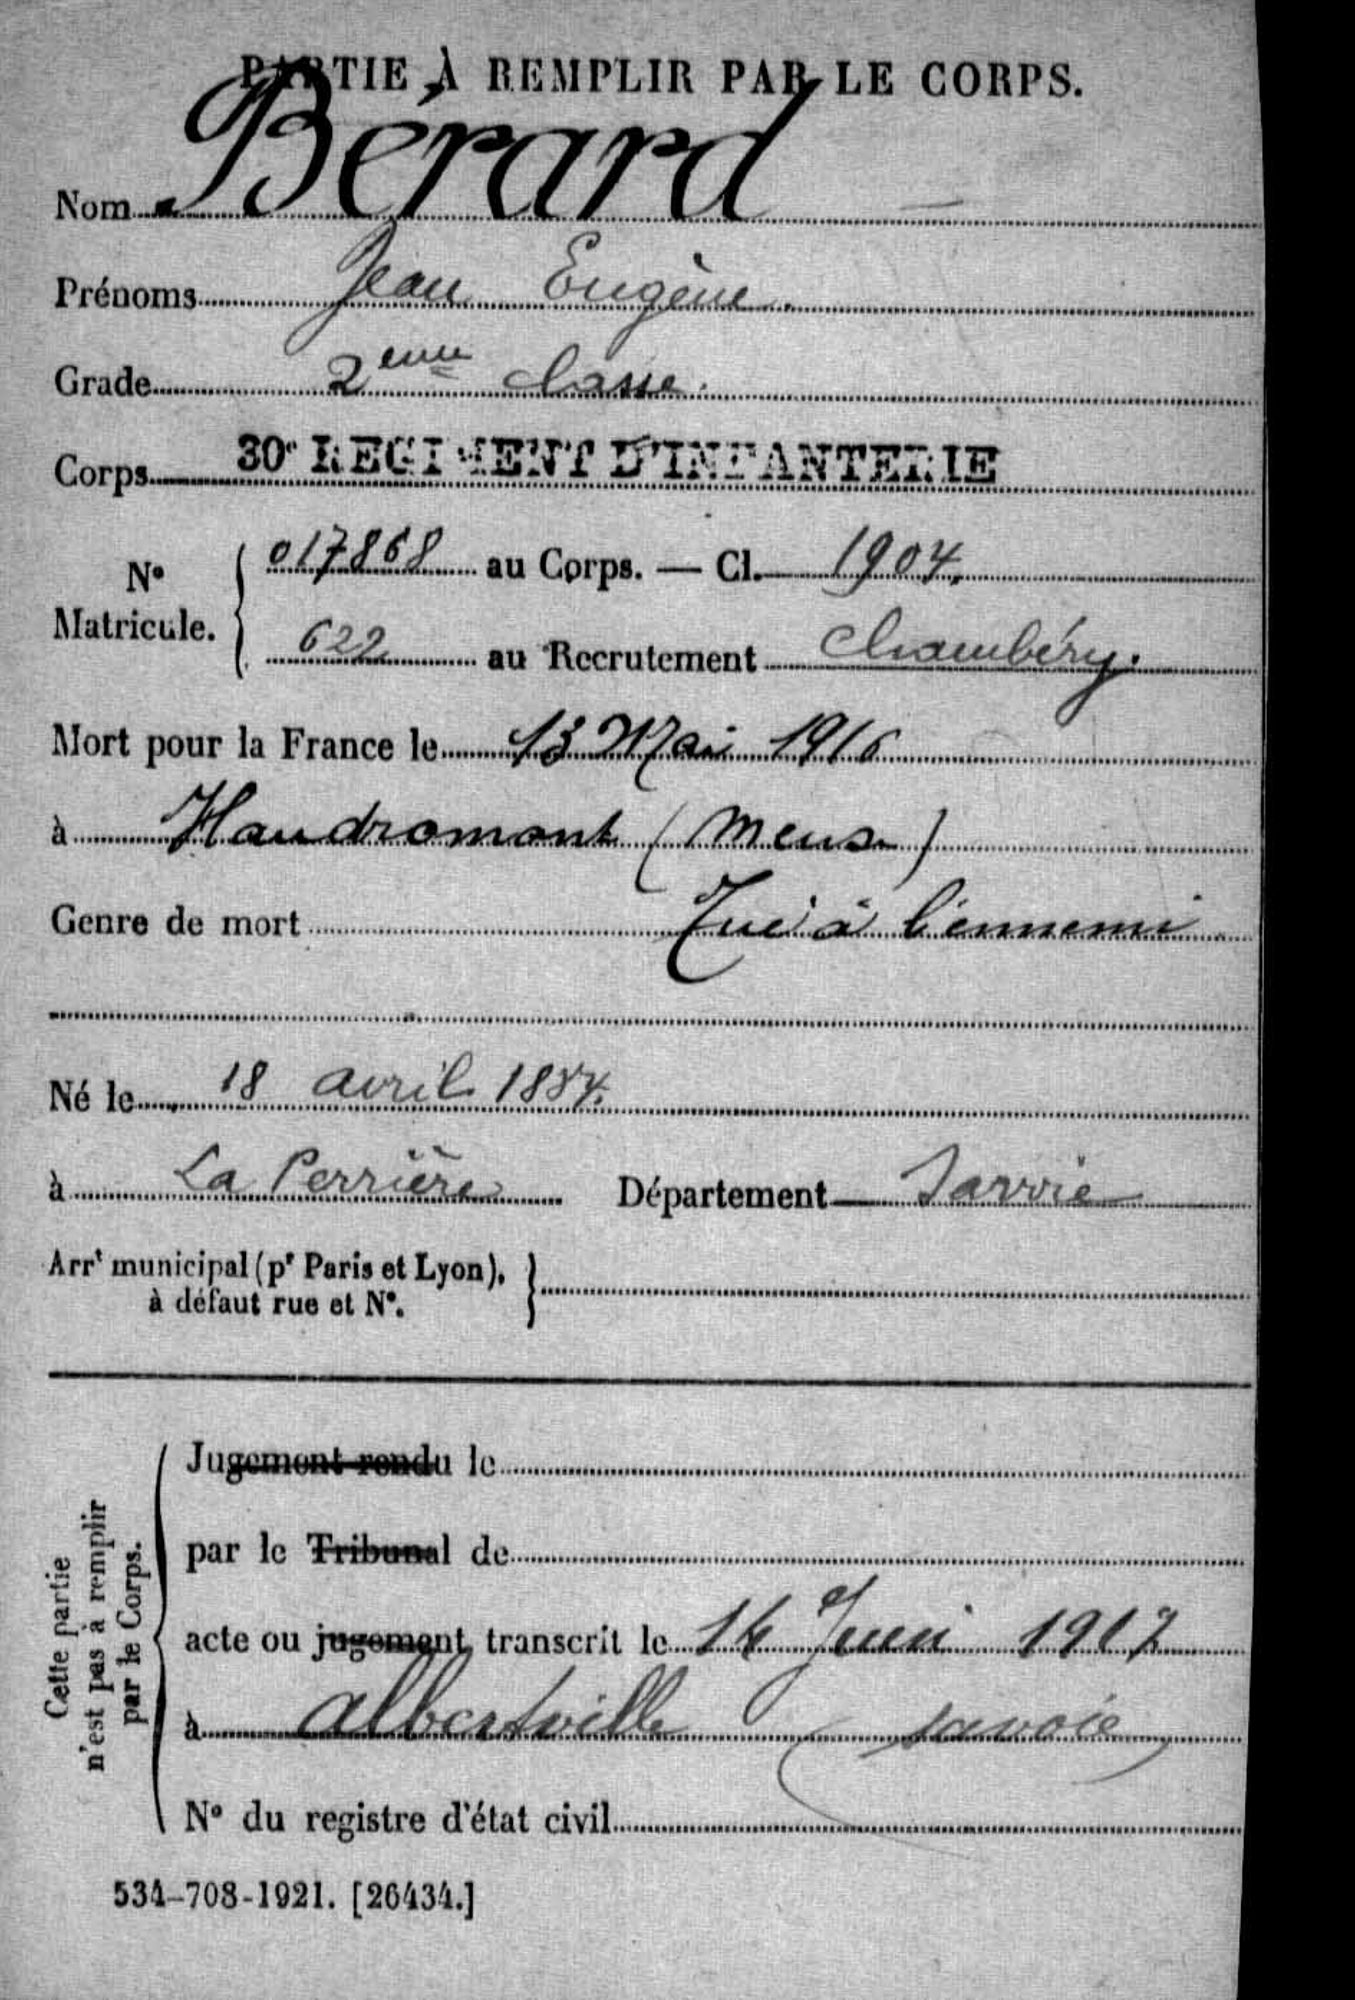 PARTIE À REMPLIR PAR LE CORPS.
Nom Bérard
Prénoms Jean Eugène
Grade 2eme Classe.
Corps 30e REGIMENT D'INFANTERIE
No Matricule. { 017868 au Corps. — Cl. 1904.
622 au Recrutement Chambéry.
Mort pour la France le 13 Mai 1916
à Haudromont (Meuse)
Genre de mort Tué à l'ennemi
Né le 18 avril 1884.
à La Perrière Département Savoie
Arrt municipal (pr Paris et Lyon),
à défaut rue et No.
Cette partie
n'est pas à remplir
par le Corps.
Jugement rendu le
par le Tribunal de
acte ou jugement transcrit le 16 Juin 1917
à Albertville (savoie)
No du registre d'état civil
534-708-1921. [26434.]